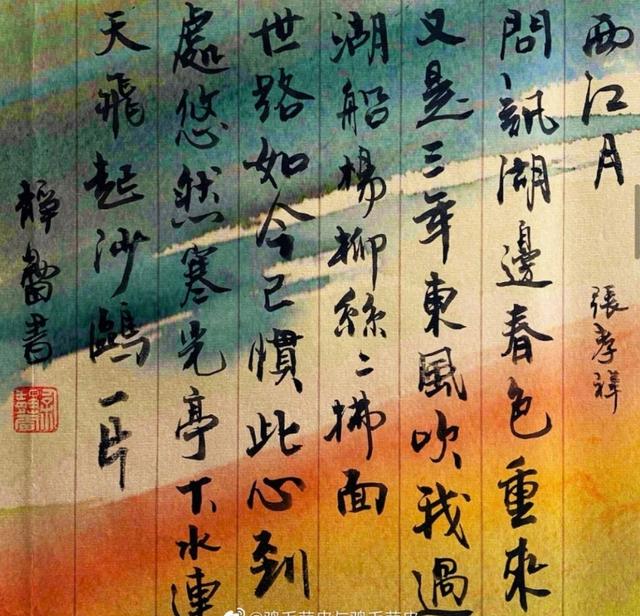 西江月 張孝祥
問訊湖邊春色重來
又是三年東風吹我過
湖船楊柳絲〻拂面
世路如今已慣此心到
處悠然寒光亭下水連
天飛起沙鷗一片
靜蕾書